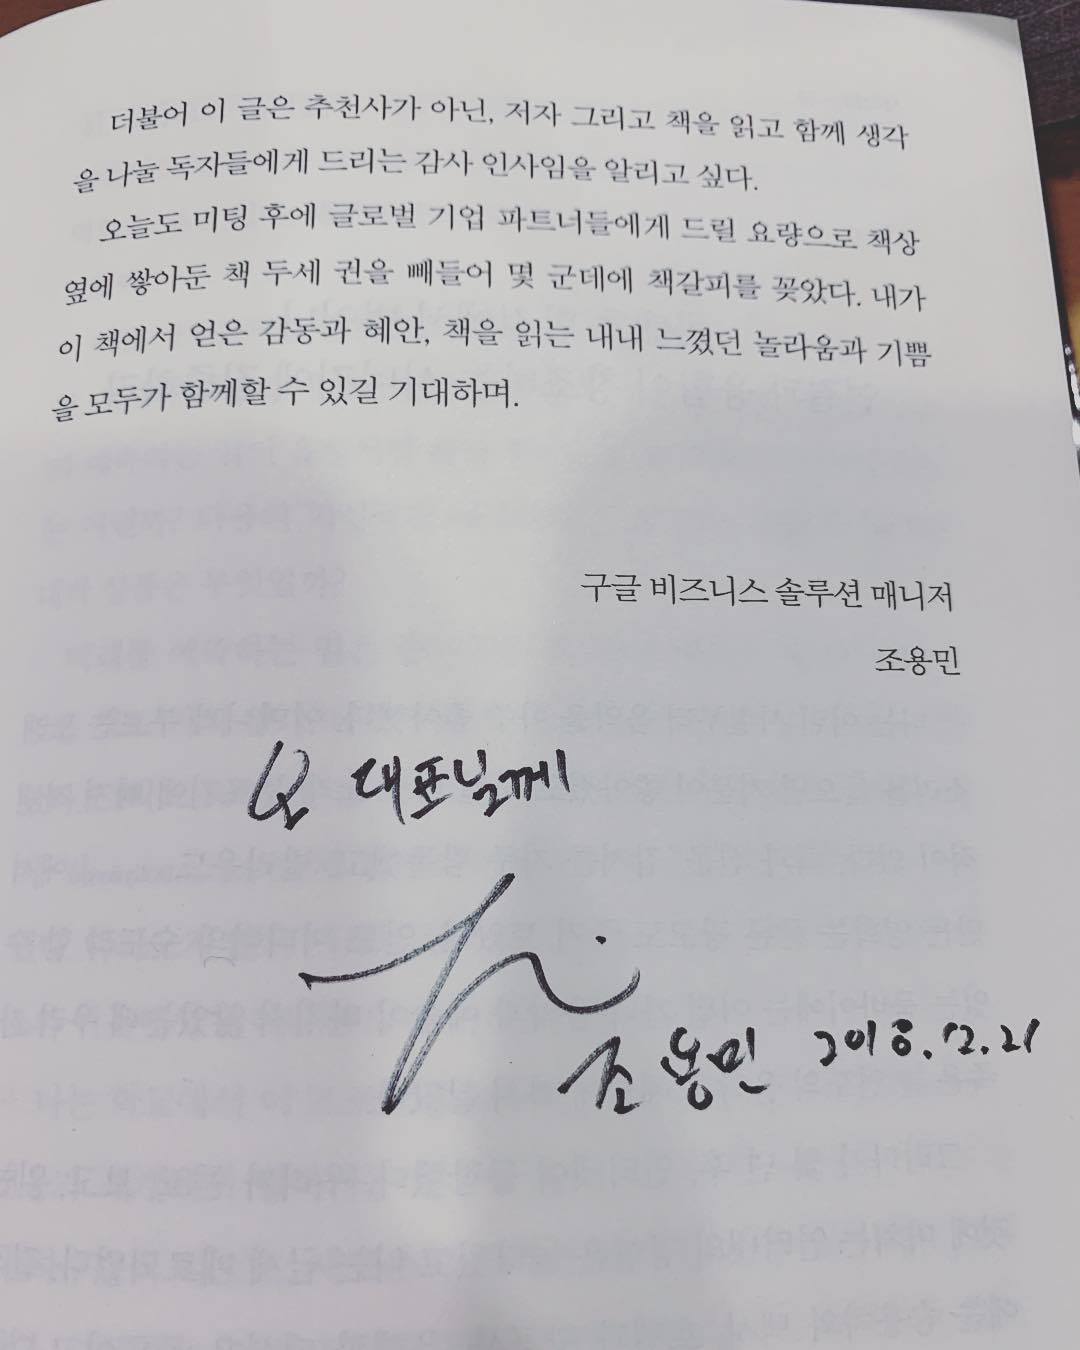 더불어 이 글은 추천사가 아닌, 저자 그리고 책을 읽고 함께 생각
을 나눌 독자들에게 드리는 감사 인사임을 알리고 싶다.
오늘도 미팅 후에 글로벌 기업 파트너들에게 드릴 요량으로 책상
옆에 쌓아둔 책 두세 권을 빼들어 몇 군데에 책갈피를 꽂았다. 내가
이 책에서 얻은 감동과 혜안, 책을 읽는 내내 느꼈던 놀라움과 기쁨
을 모두가 함께할 수 있길 기대하며.
구글 비즈니스 솔루션 매니저
조용민
대표님께
조용민 2018.12.21